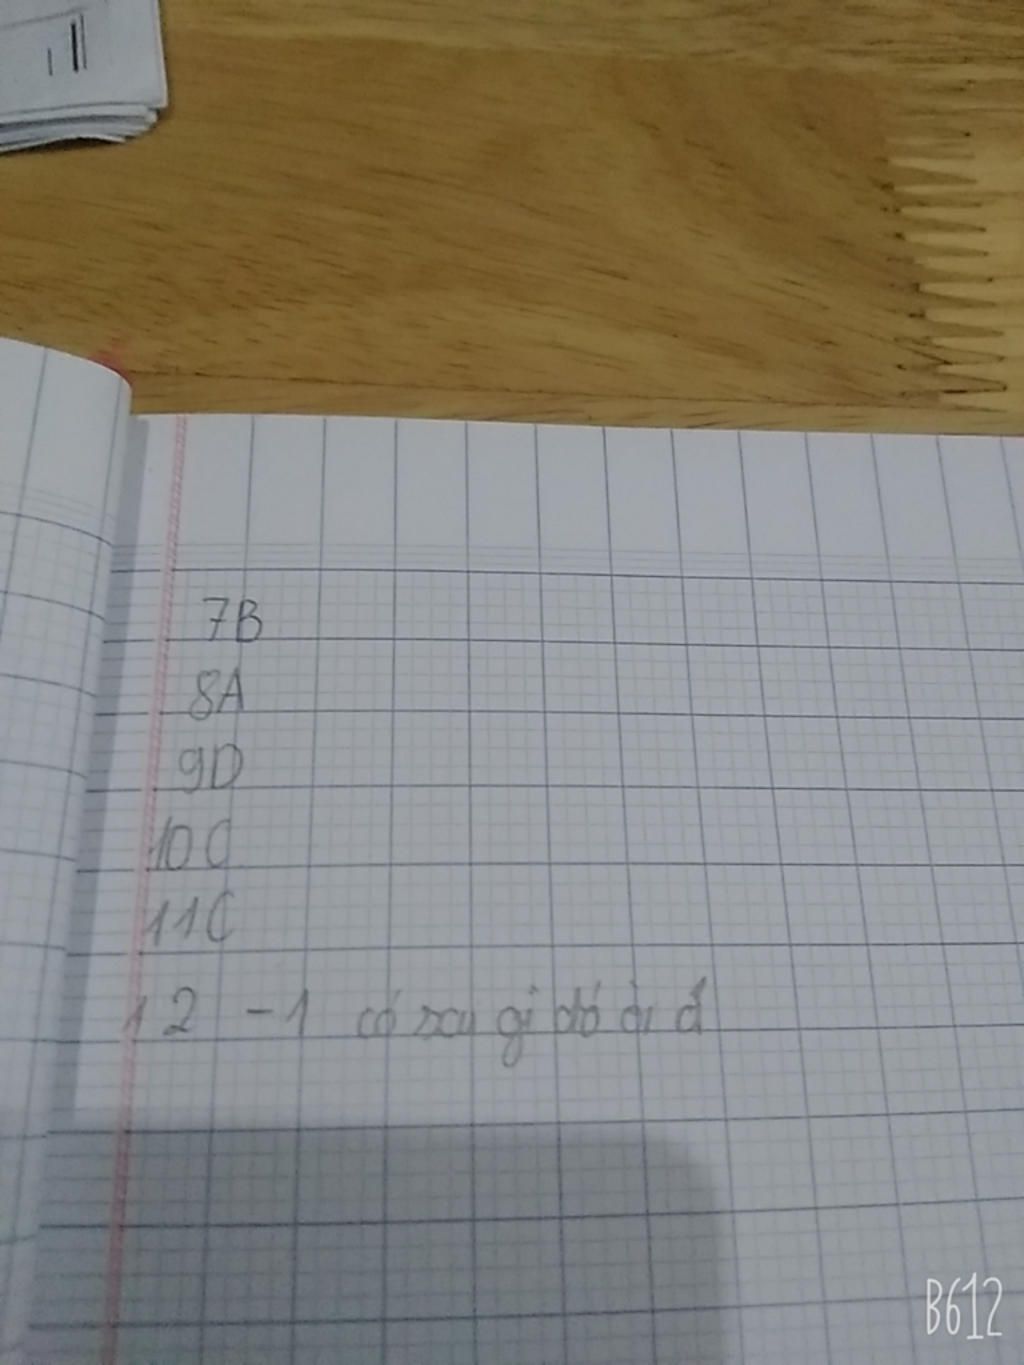 7B
8A
9D
10C
11C
12 -1 có gì đó
B612